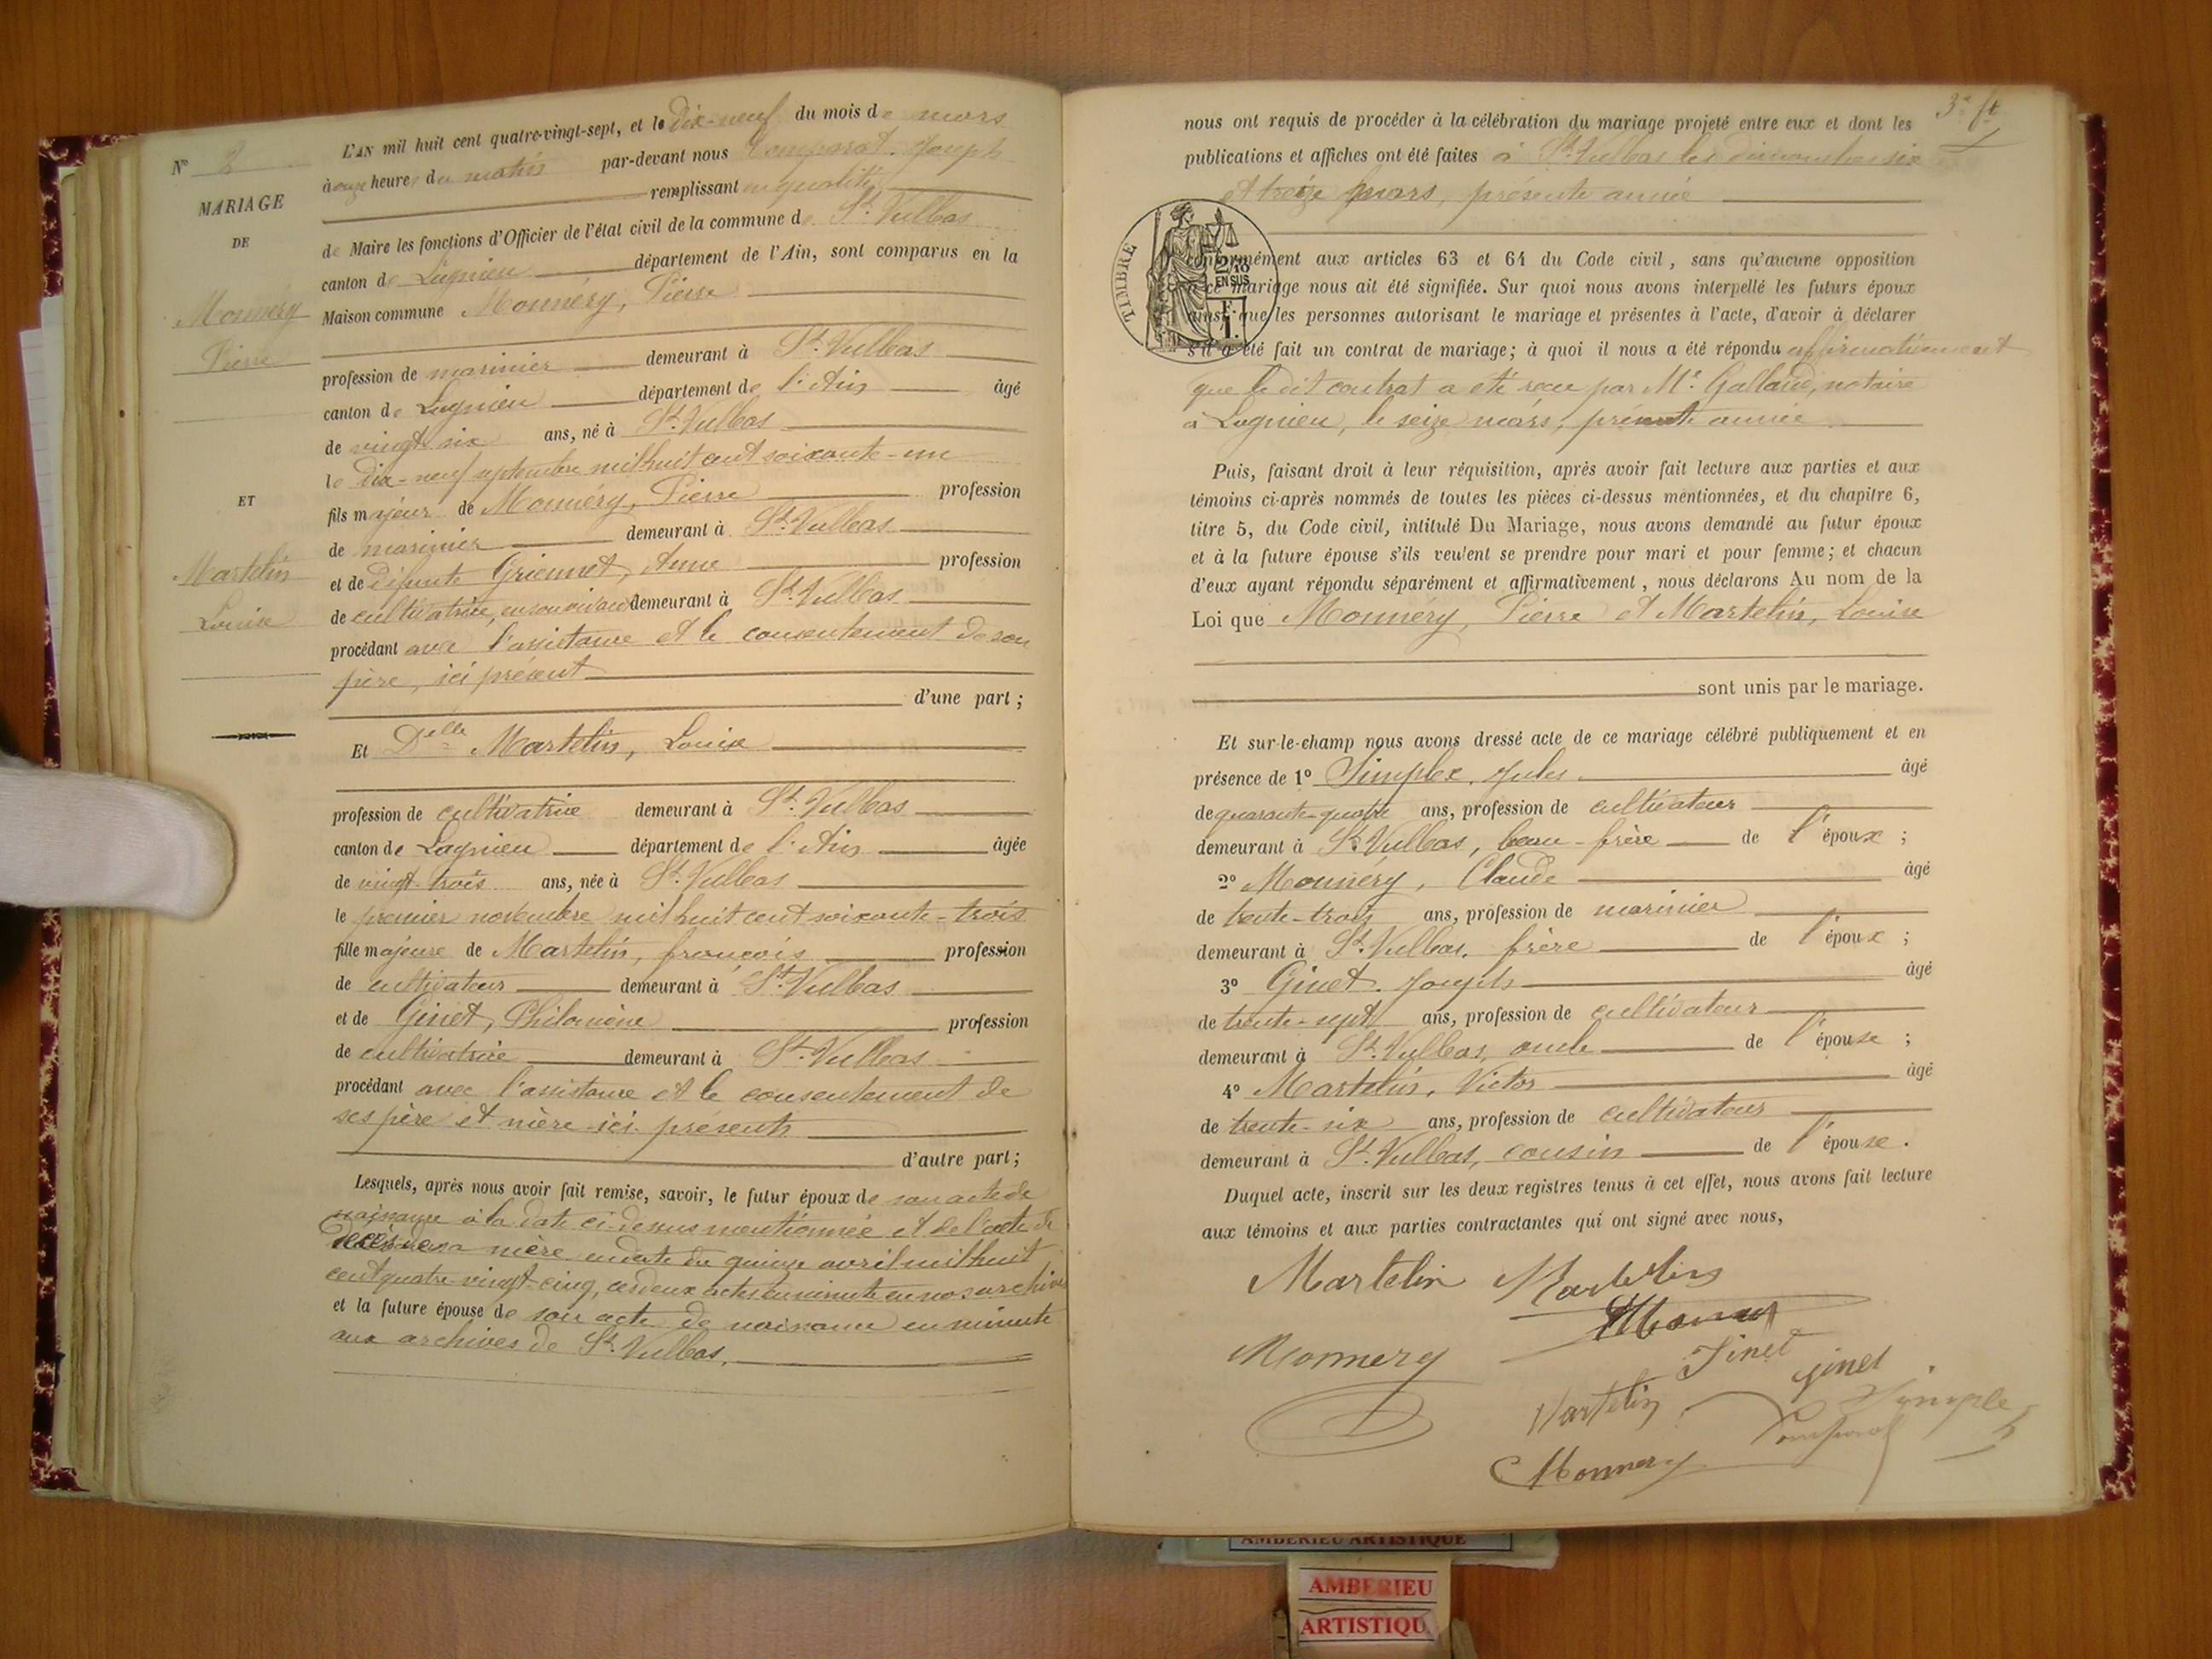 N° 2
MARIAGE
DE
Monnéry
Pierre
ET
Martelin
Louise
L'AN mil huit cent quatre-vingt-sept, et le dix-neuf du mois de mars
à onze heures du matin par-devant nous Comparat, Joseph
remplissant en qualité
de Maire les fonctions d'Officier de l'état civil de la commune de St. Vulbas
canton de Lagnieu département de l'Ain, sont comparus en la
Maison commune Monnéry, Pierre
profession de marinier demeurant à St. Vulbas
canton de Lagnieu département de l'Ain âgé
de vingt-six ans, né à St. Vulbas
le dix-neuf septembre mil huit cent soixante-un
fils majeur de Monnéry, Pierre profession
de marinier demeurant à St. Vulbas
et de défunte Griennet, Anne profession
de cultivatrice, en son vivant demeurant à St. Vulbas
procédant avec l'assistance et le consentement de son
père, ici présent
d'une part ;
Et Delle Martelin, Louise
profession de cultivatrice demeurant à St. Vulbas
canton de Lagnieu département de l'Ain âgée
de vingt-trois ans, née à St. Vulbas
le premier novembre mil huit cent soixante-trois
fille majeure de Martelin, françois profession
de cultivateur demeurant à St. Vulbas
et de Ginet, Philomène profession
de cultivatrice demeurant à St. Vulbas
procédant avec l'assistance et le consentement de
ses père et mère ici présents
d'autre part ;
Lesquels, après nous avoir fait remise, savoir, le futur époux de son acte de
naissance à la date ci-dessus mentionnée et de l'acte de
décès de sa mère en date du quinze avril mil huit
cent quatre-vingt-cinq, ces deux actes en minute en nos archives
et la future épouse de son acte de naissance en minute
aux archives de St. Vulbas,
3e ft
nous ont requis de procéder à la célébration du mariage projeté entre eux et dont les
publications et affiches ont été faites à St. Vulbas les dimanches six
et treize mars, présente année
TIMBRE
2/10
EN SUS
F.
1.
conformément aux articles 63 et 64 du Code civil, sans qu'aucune opposition
à ce mariage nous ait été signifiée. Sur quoi nous avons interpellé les futurs époux
ainsi que les personnes autorisant le mariage et présentes à l'acte, d'avoir à déclarer
s'il a été fait un contrat de mariage; à quoi il nous a été répondu affirmativement
que le dit contrat a été reçu par Me. Galland, notaire
à Lagnieu, le seize mars, présente année
Puis, faisant droit à leur réquisition, après avoir fait lecture aux parties et aux
témoins ci-après nommés de toutes les pièces ci-dessus mentionnées, et du chapitre 6,
titre 5, du Code civil, intitulé Du Mariage, nous avons demandé au futur époux
et à la future épouse s'ils veulent se prendre pour mari et pour femme; et chacun
d'eux ayant répondu séparément et affirmativement, nous déclarons Au nom de la
Loi que Monnéry, Pierre et Martelin, Louise
sont unis par le mariage.
Et sur-le-champ nous avons dressé acte de ce mariage célébré publiquement et en
présence de 1° Simplex, Jules âgé
de quarante-quatre ans, profession de cultivateur
demeurant à St. Vulbas, beau-frère de l'époux ;
2° Monnéry, Claude âgé
de trente-trois ans, profession de marinier
demeurant à St. Vulbas, frère de l'époux ;
3° Ginet, Joseph âgé
de trente-sept ans, profession de cultivateur
demeurant à St. Vulbas, oncle de l'épouse ;
4° Martelin, Victor âgé
de trente-six ans, profession de cultivateur
demeurant à St. Vulbas, cousin de l'épouse.
Duquel acte, inscrit sur les deux registres tenus à cet effet, nous avons fait lecture
aux témoins et aux parties contractantes qui ont signé avec nous,
Martelin Martelin
Monnery
Ginet
Ginet
Martelin
Simplex
Comparat
Monnery
AMBERIEU ARTISTIQUE
AMBERIEU
ARTISTIQU